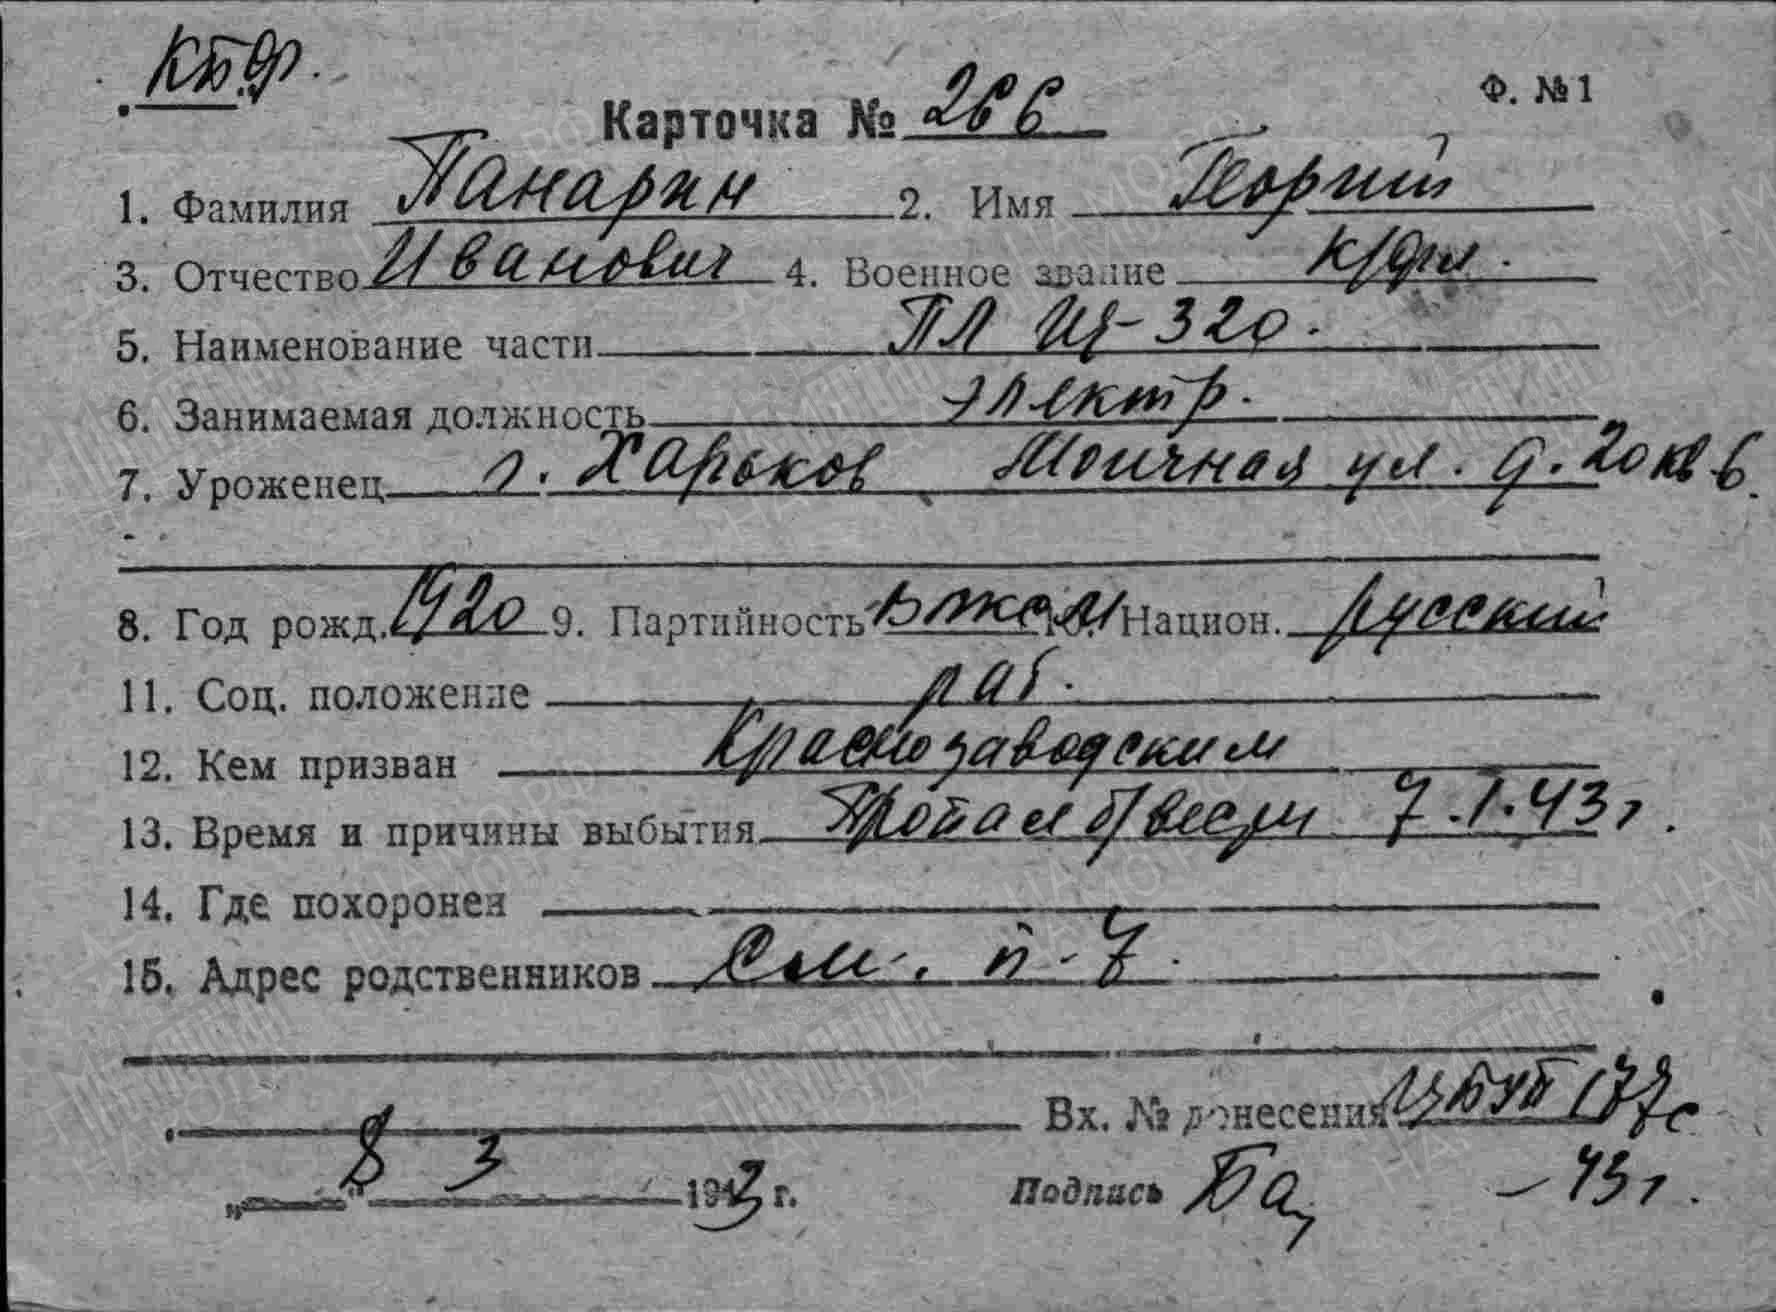 КБФ.
Ф. №1
Карточка № 266
1. Фамилия Панарин 2. Имя Георгий
3. Отчество Иванович 4. Военное звание к/фл.
5. Наименование части ПЛ Щ-320.
6. Занимаемая должность электр.
7. Уроженец г. Харьков ул. д. 20 кв 6.
8. Год рожд. 1920 9. Партийность ВЛКСМ 10. Национ. русский
11. Соц. положение раб.
12. Кем призван Краснозаводским
13. Время и причины выбытия Пропал б/вести 7.I.43г.
14. Где похоронен
15. Адрес родственников См. п-7.
Вх. № донесения 177с
„ 8 " 3 1943 г. Подпись Ба -43г.